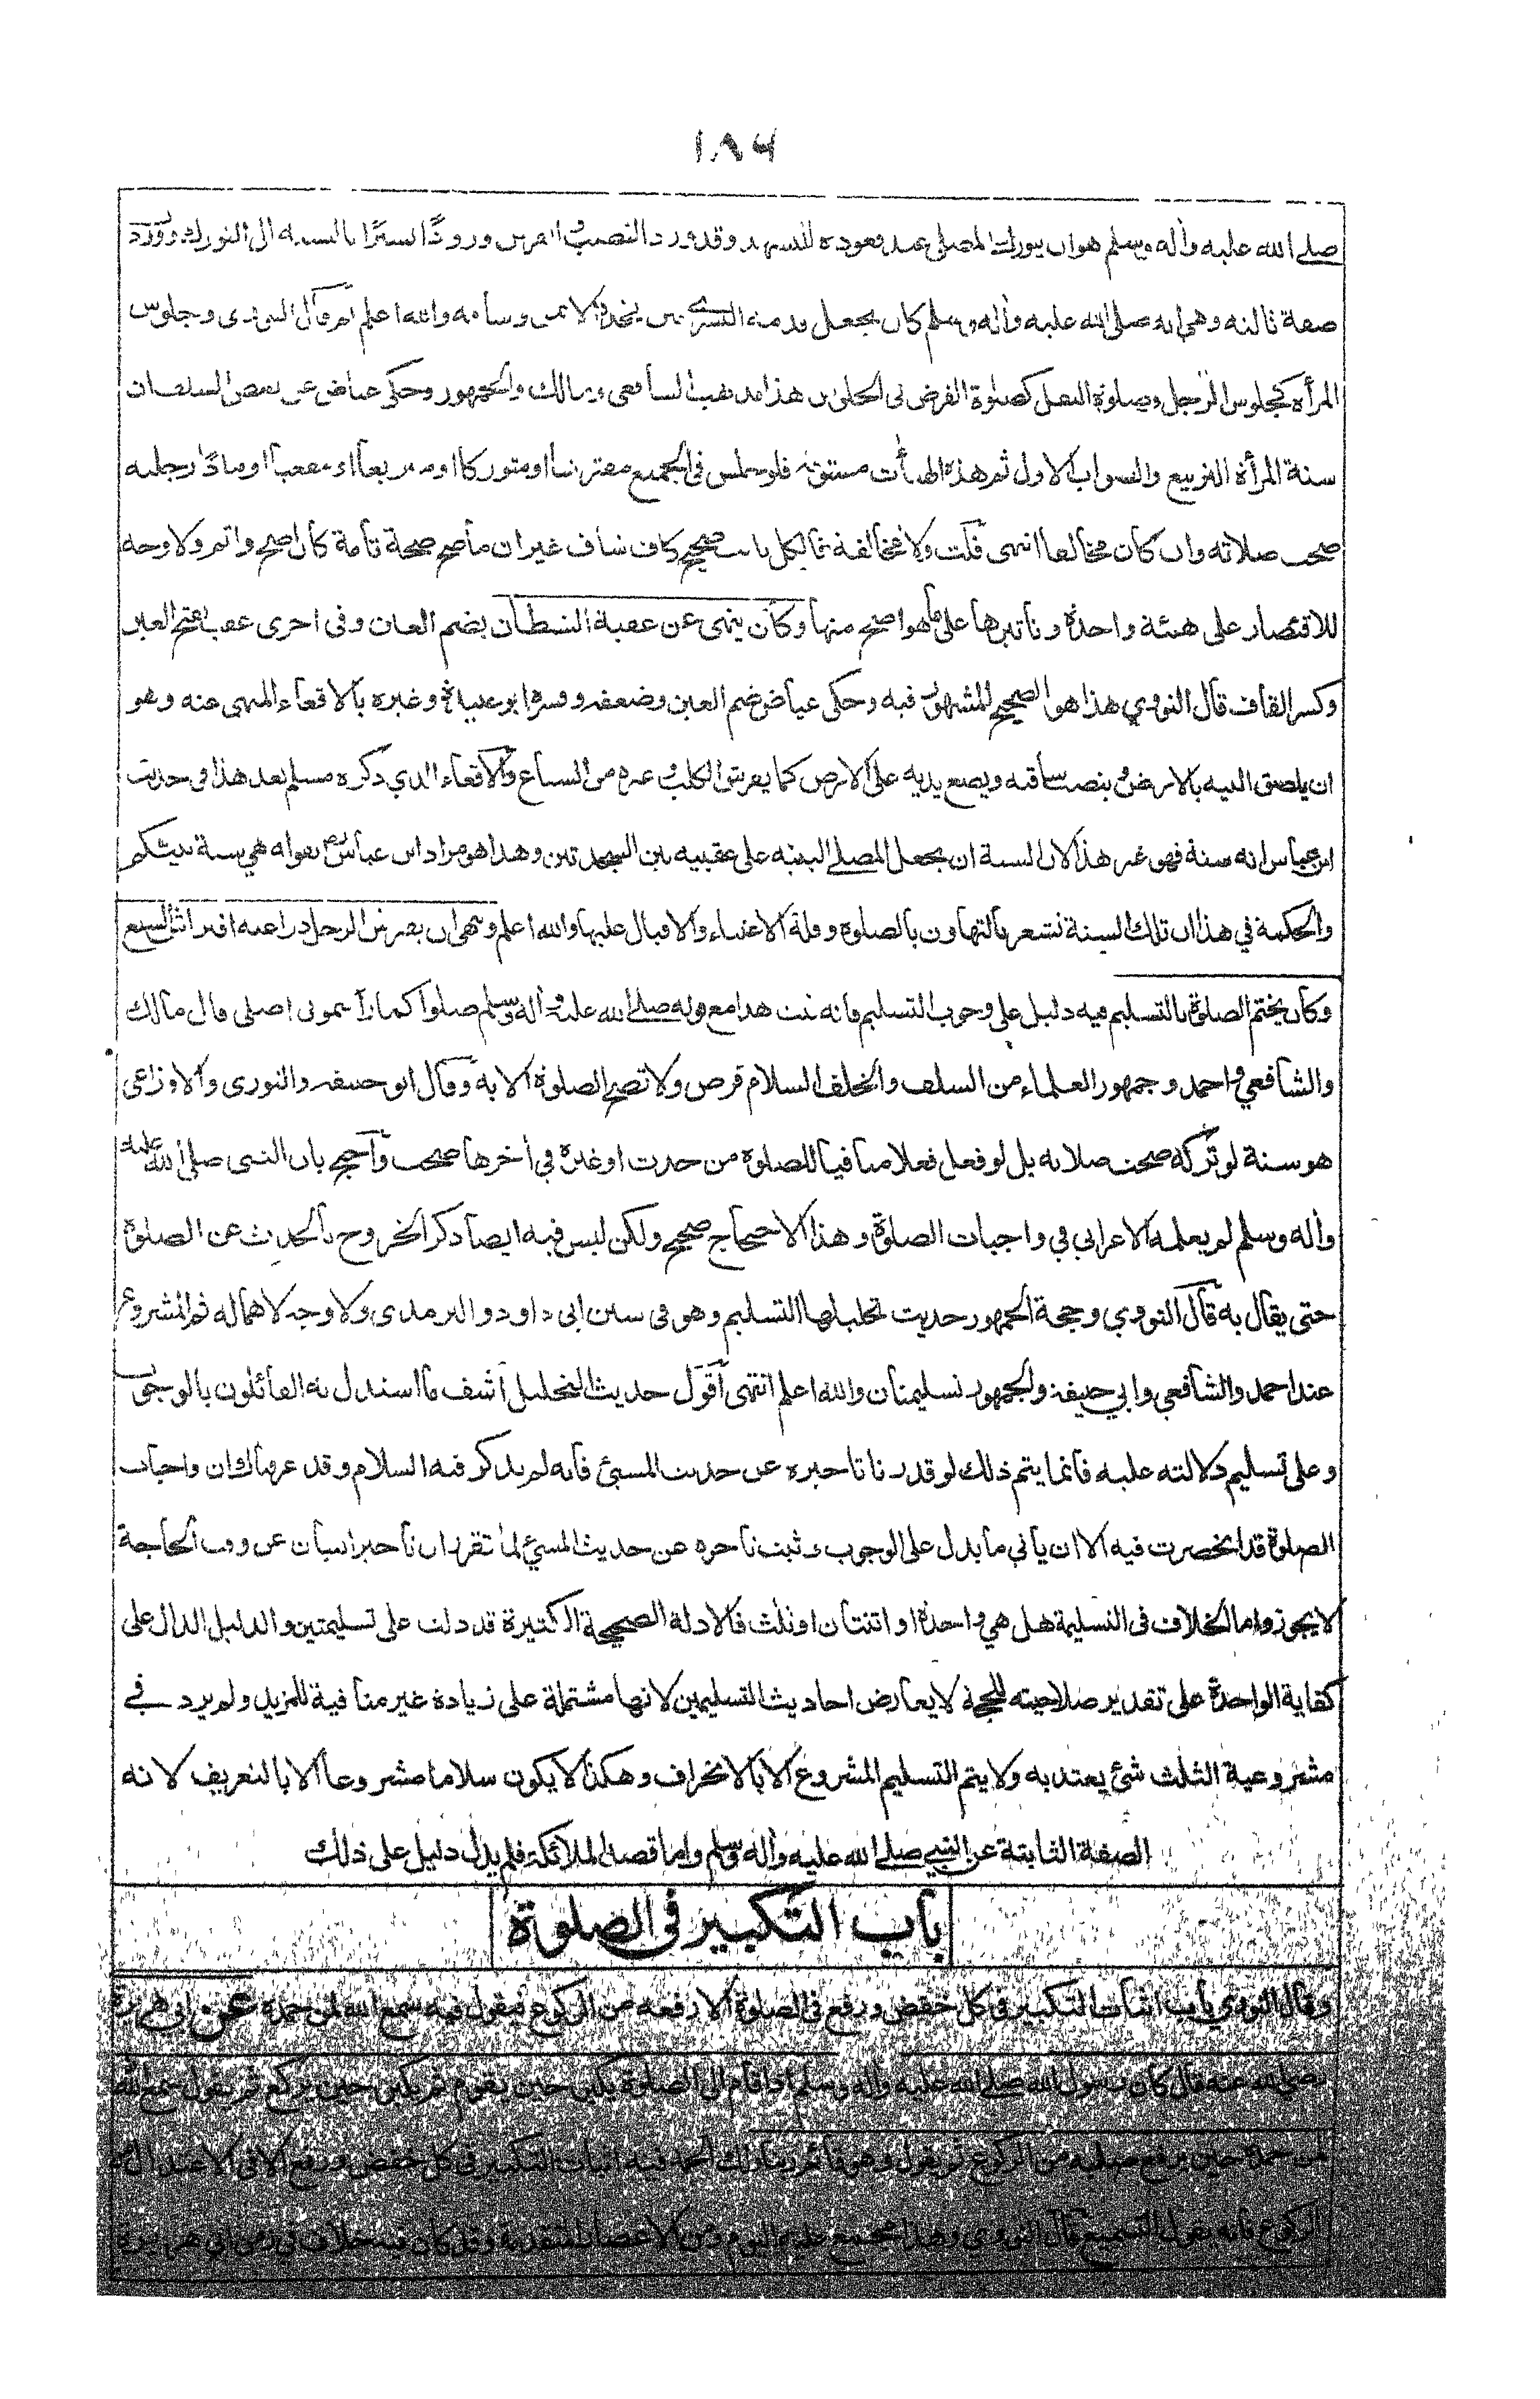 ١٨٦
صلى الله عليه وأله وسلم هو ان يتورك المصلي عند قعوده للتشهد وقد ورد النصب والفرش ورودًا بالنسبة الى التورك وورد
صفة ثالثة وهي انه صلى الله عليه وأله وسلم كان يجعل قدمه اليسرى بين فخذه الايمن وساقه والله اعلم ثم قال النووي وجلوس
المرأة كجلوس الرجل وصلوة النفل كصلوة الفرض في الجلوس هذا مذهب الشافعي ومالك والجمهور وحكى عياض عن بعض السلف ان
سنة المرأة التربيع والصواب الاول ثم هذه الهيأت مسنونة فلو جلس في الجميع مفترشا او متوركا او متربعا او مقعيا او مادًّا رجليه
صحت صلاته وان كان مخالفا انتهى قلت ولا مخالفة فالكل باب صحيح كاف شاف غير ان ما صح صحة تامة كان اصح واتم ولا وجه
للاقتصار على هيئة واحدة وتأثيرها على ما هو اصح منها وكان ينهى عن عقبة الشيطان بضم العين وفي اخرى عقب بفتح العين
وكسر القاف قال النووي هذا هو الصحيح المشهور فيه وحكى عياض ضم العين وضعفه وفسره ابو عبيدة وغيره بالاقعاء المنهي عنه وهو
ان يلصق اليه بالارض وينصب ساقيه ويضع يديه على الارض كما يفرش الكلب وغيره من السباع والاقعاء الذي ذكره مسلم بعد هذا في حديث
ابن عباس انه سنة فهو غير هذا لان السنة ان يجعل المصلى اليتيه على عقبيه بين السجدتين وهذا هو مراد ابن عباس بقوله هي سنة نبيكم
والحكمة في هذا ان تلك السنة تشعر بالتهاون بالصلوة وقلة الاعتناء والاقبال عليها والله اعلم ونهى ان يفرش الرجل ذراعيه افتراش السبع
وكان يختم الصلوة بالتسليم فيه دليل على وجوب التسليم فانه ثبت هذا مع قوله صلى الله عليه وأله وسلم صلوا كما رأيتموني اصلي قال مالك
والشافعي واحمد وجمهور العلماء من السلف والخلف السلام فرض ولا تصح الصلوة الا به وقال ابو حنيفة والثوري والاوزاعي
هو سنة لو تركه صحت صلاته بل لو فعل فعلا منافيا للصلوة من حدث او غيره في أخرها صحت واحتج بان النبي صلى الله عليه
وأله وسلم لم يعلمه الاعرابي في واجبات الصلوة وهذا الاحتجاج صحيح ولكن ليس فيه ايضا ذكر الخروج بالحديث عن الصلوة
حتى يقال به قال النووي وحجة الجمهور حديث تحليلها التسليم وهو في سنن ابي داود والترمذي ولا وجه لاهماله ثم المشروع
عند احمد والشافعي وابي حنيفة والجمهور تسليمتان والله اعلم انتهى اقول حديث التحليل اشف ما استدل به القائلون بالوجوب
وعلى تسليم دلالته عليه فانما يتم ذلك لو قدرنا تاخيره عن حديث المسيئ فانه لم يذكر فيه السلام وقد عرفناك ان واجبات
الصلوة قد انحصرت فيه الا ان يأتي ما يدل على الوجوب وثبت تأخره عن حديث المسيئ لما تقرر ان تأخير البيان عن وقت الحاجة
لا يجوز واما الخلاف في التسليمة هل هي واحدة او اثنتان او ثلث فالادلة الصحيحة الكثيرة قد دلت على تسليمتين والدليل الدال على
كفاية الواحدة على تقدير صلاحيته للحجة لا يعارض احاديث التسليمين لانها مشتملة على زيادة غير منافية للمزيد ولم يرد في
مشروعية الثلث شئ يعتد به ولا يتم التسليم المشروع الا بالانحراف وهكذا لا يكون سلاما مشروعا الا بالتعريف لانه
الصفة الثابتة عن النبي صلى الله عليه وأله وسلم واما قصد الملائكة فلم يدل دليل على ذلك
باب التكبير في الصلوة
وقال النووي باب اثبات التكبير في كل خفض ورفع في الصلوة الا رفعه من الركوع فيقول فيه سمع الله لمن حمده عن ابي هريرة
رضي الله عنه قال كان رسول الله صلى الله عليه وأله وسلم اذا قام الى الصلوة يكبر حين يقوم ثم يكبر حين يركع ثم يقول سمع الله
لمن حمده حين يرفع صلبه من الركوع ثم يقول وهو قائم ربنا ولك الحمد فيه اثبات التكبير في كل خفض ورفع الا في الاعتدال
الركوع فانه يقول التسميع قال النووي وهذا مجمع عليه اليوم ومن الاعصار المتقدمة وقد كان فيه خلاف في زمن ابي هريرة